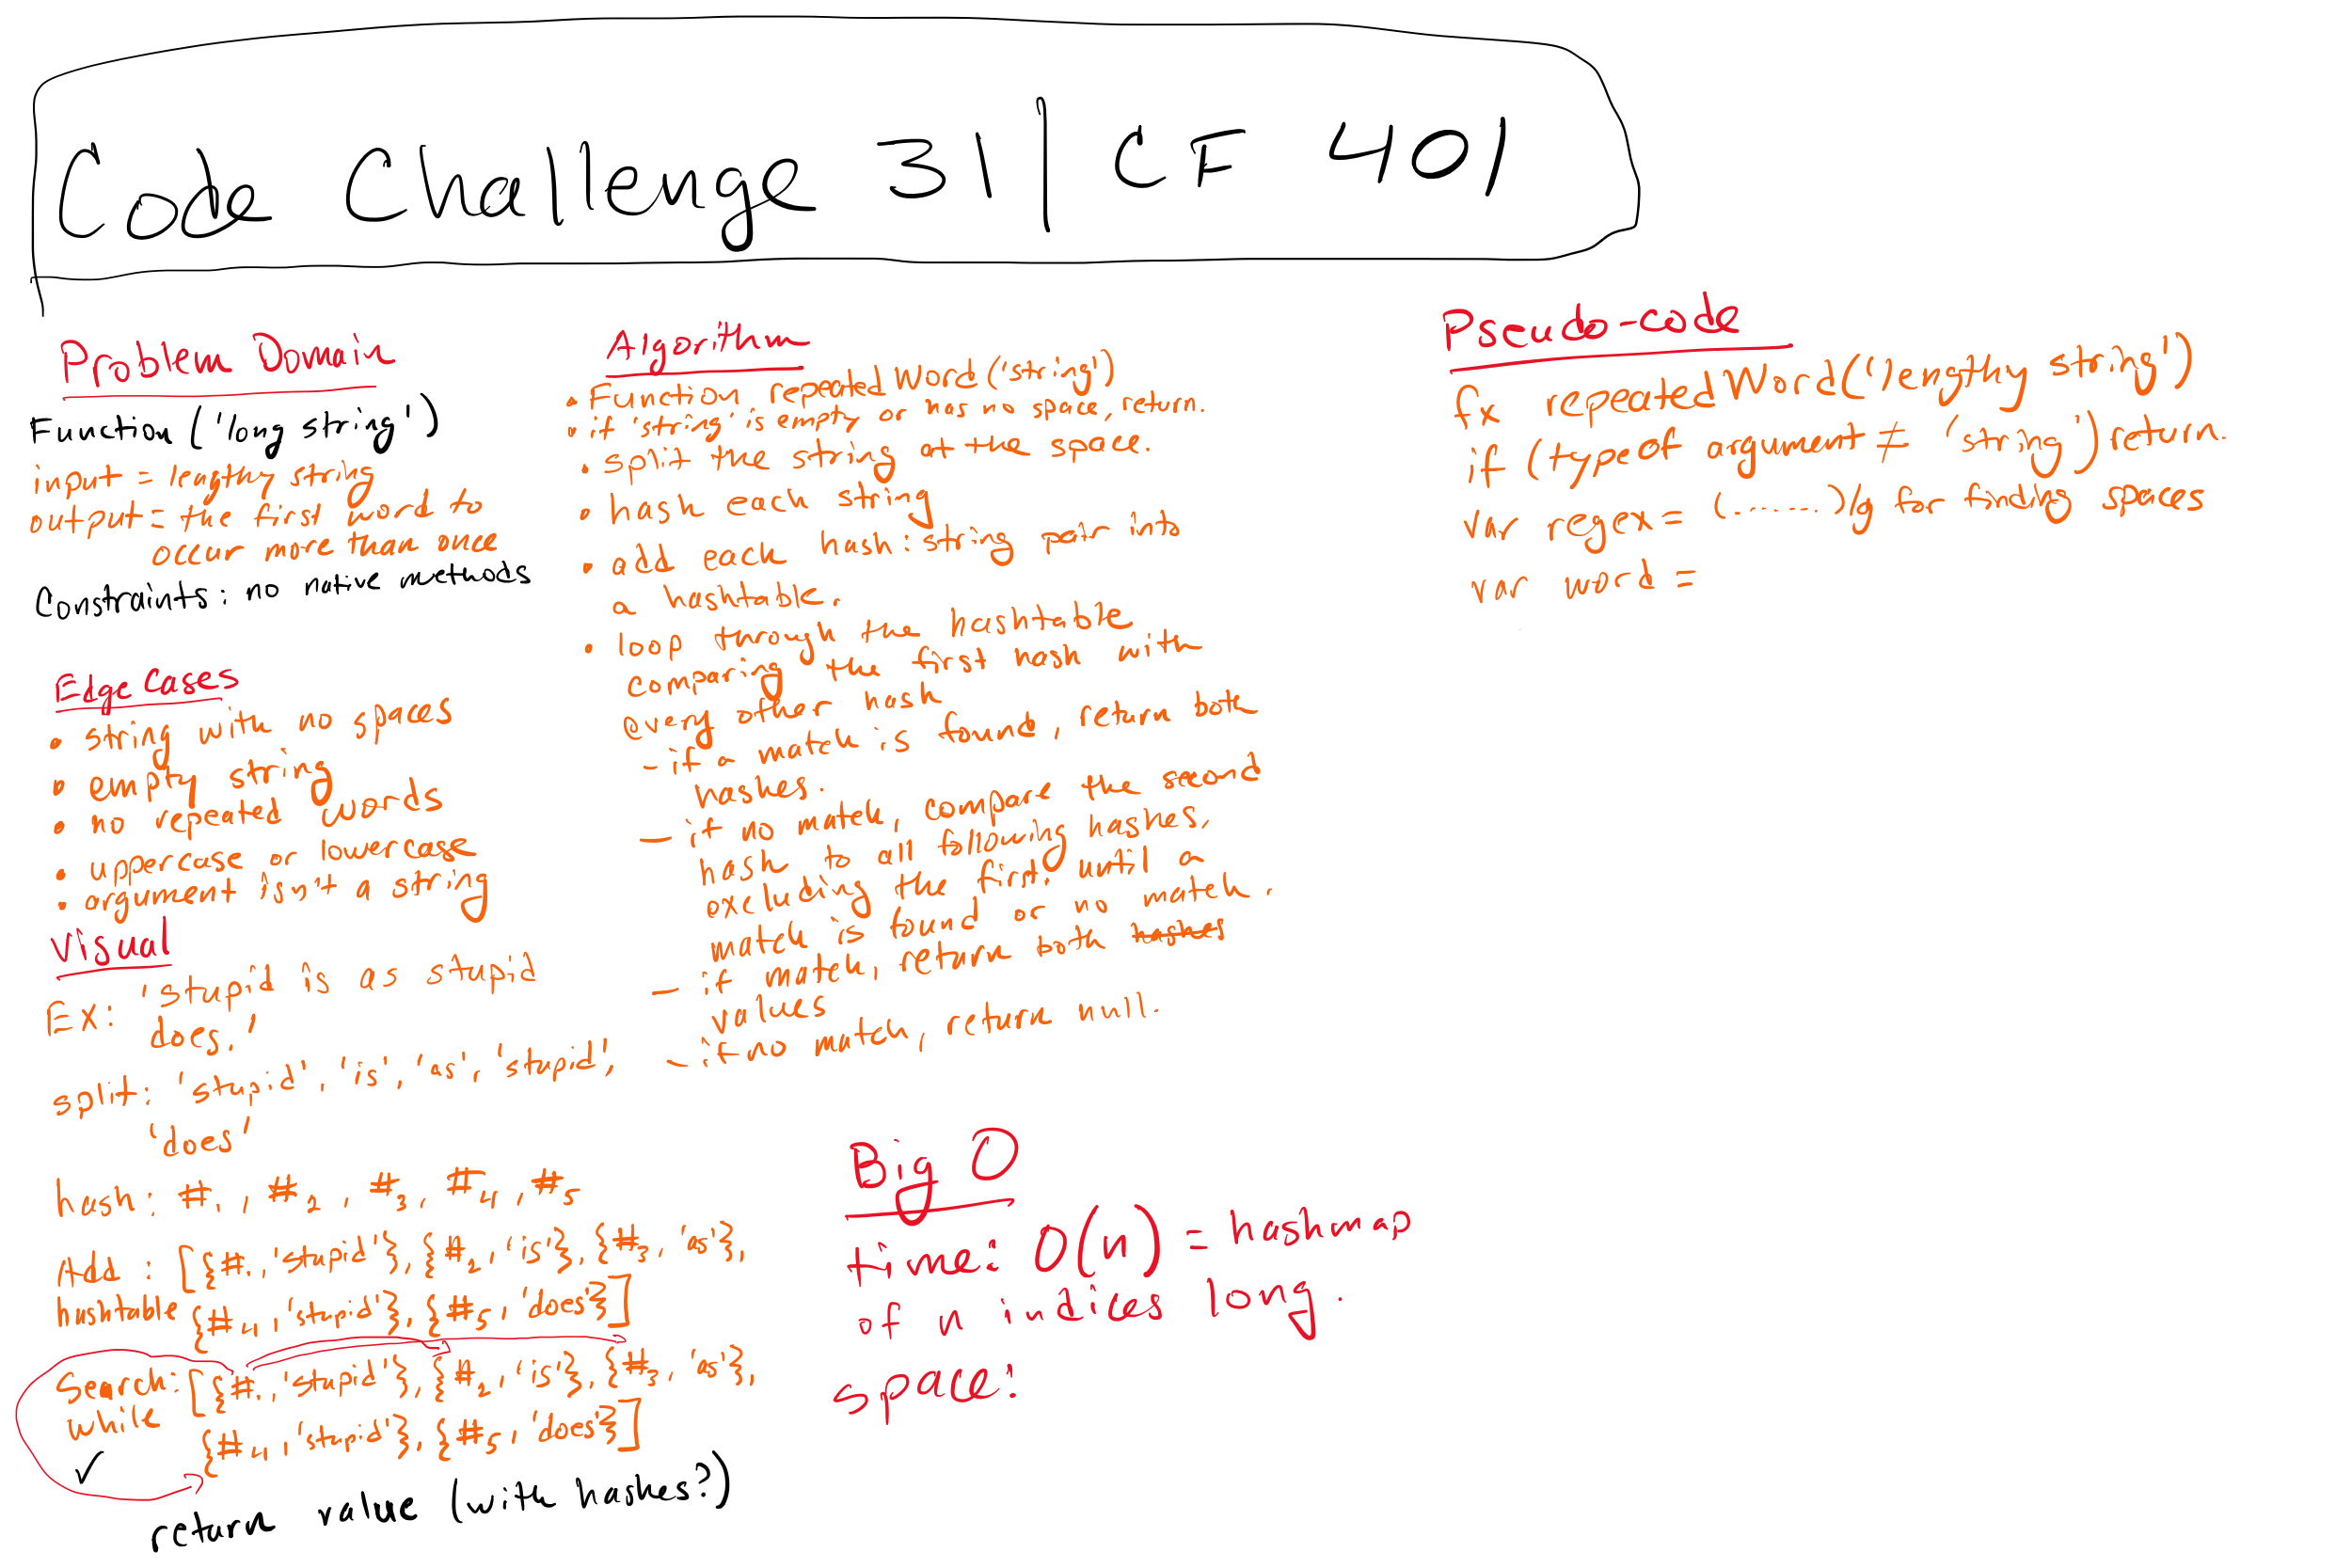 Code Challenge 31 | CF 401
Problem Domain
Function ('long string')
input = lengthy string
output = the first word to
occur more than once
Constraints: no native methods
Edge Cases
• string with no spaces
• empty string
• no repeated words
• uppercase or lowercase
• argument isn't a string
Visual
Ex: 'stupid is as stupid
does.'
split: 'stupid', 'is', 'as', 'stupid',
'does'
hash: #1, #2, #3, #4, #5
Add: [{#1, 'stupid'}, {#2, 'is'}, {#3, 'as'},
hashtable {#4, 'stupid'}, {#5, 'does'}]
Search: [{#1, 'stupid'}, {#2, 'is'}, {#3, 'as'},
while {#4, 'stupid'}, {#5, 'does'}]
✓
return value (with hashes?)
Algorithm
• Function repeatedWord('string')
• if 'string' is empty or has no space, return.
• split the string at the space.
• hash each string
• add each hash: string pair into
a hashtable.
• loop through the hashtable
comparing the first hash with
every other hash
- if a match is found, return both
hashes.
- if no match, compare the second
hash to all following hashes,
excluding the first, until a
match is found or no match.
- if match, return both hashes
values
- if no match, return null.
Big O
time: O(n) = hashmap
of n indices long.
space:
Pseudo-code
fx repeatedWord('lengthy string')
if (typeof argument ≠ 'string') return.
var regex = (.......)/g for finding spaces
var word =